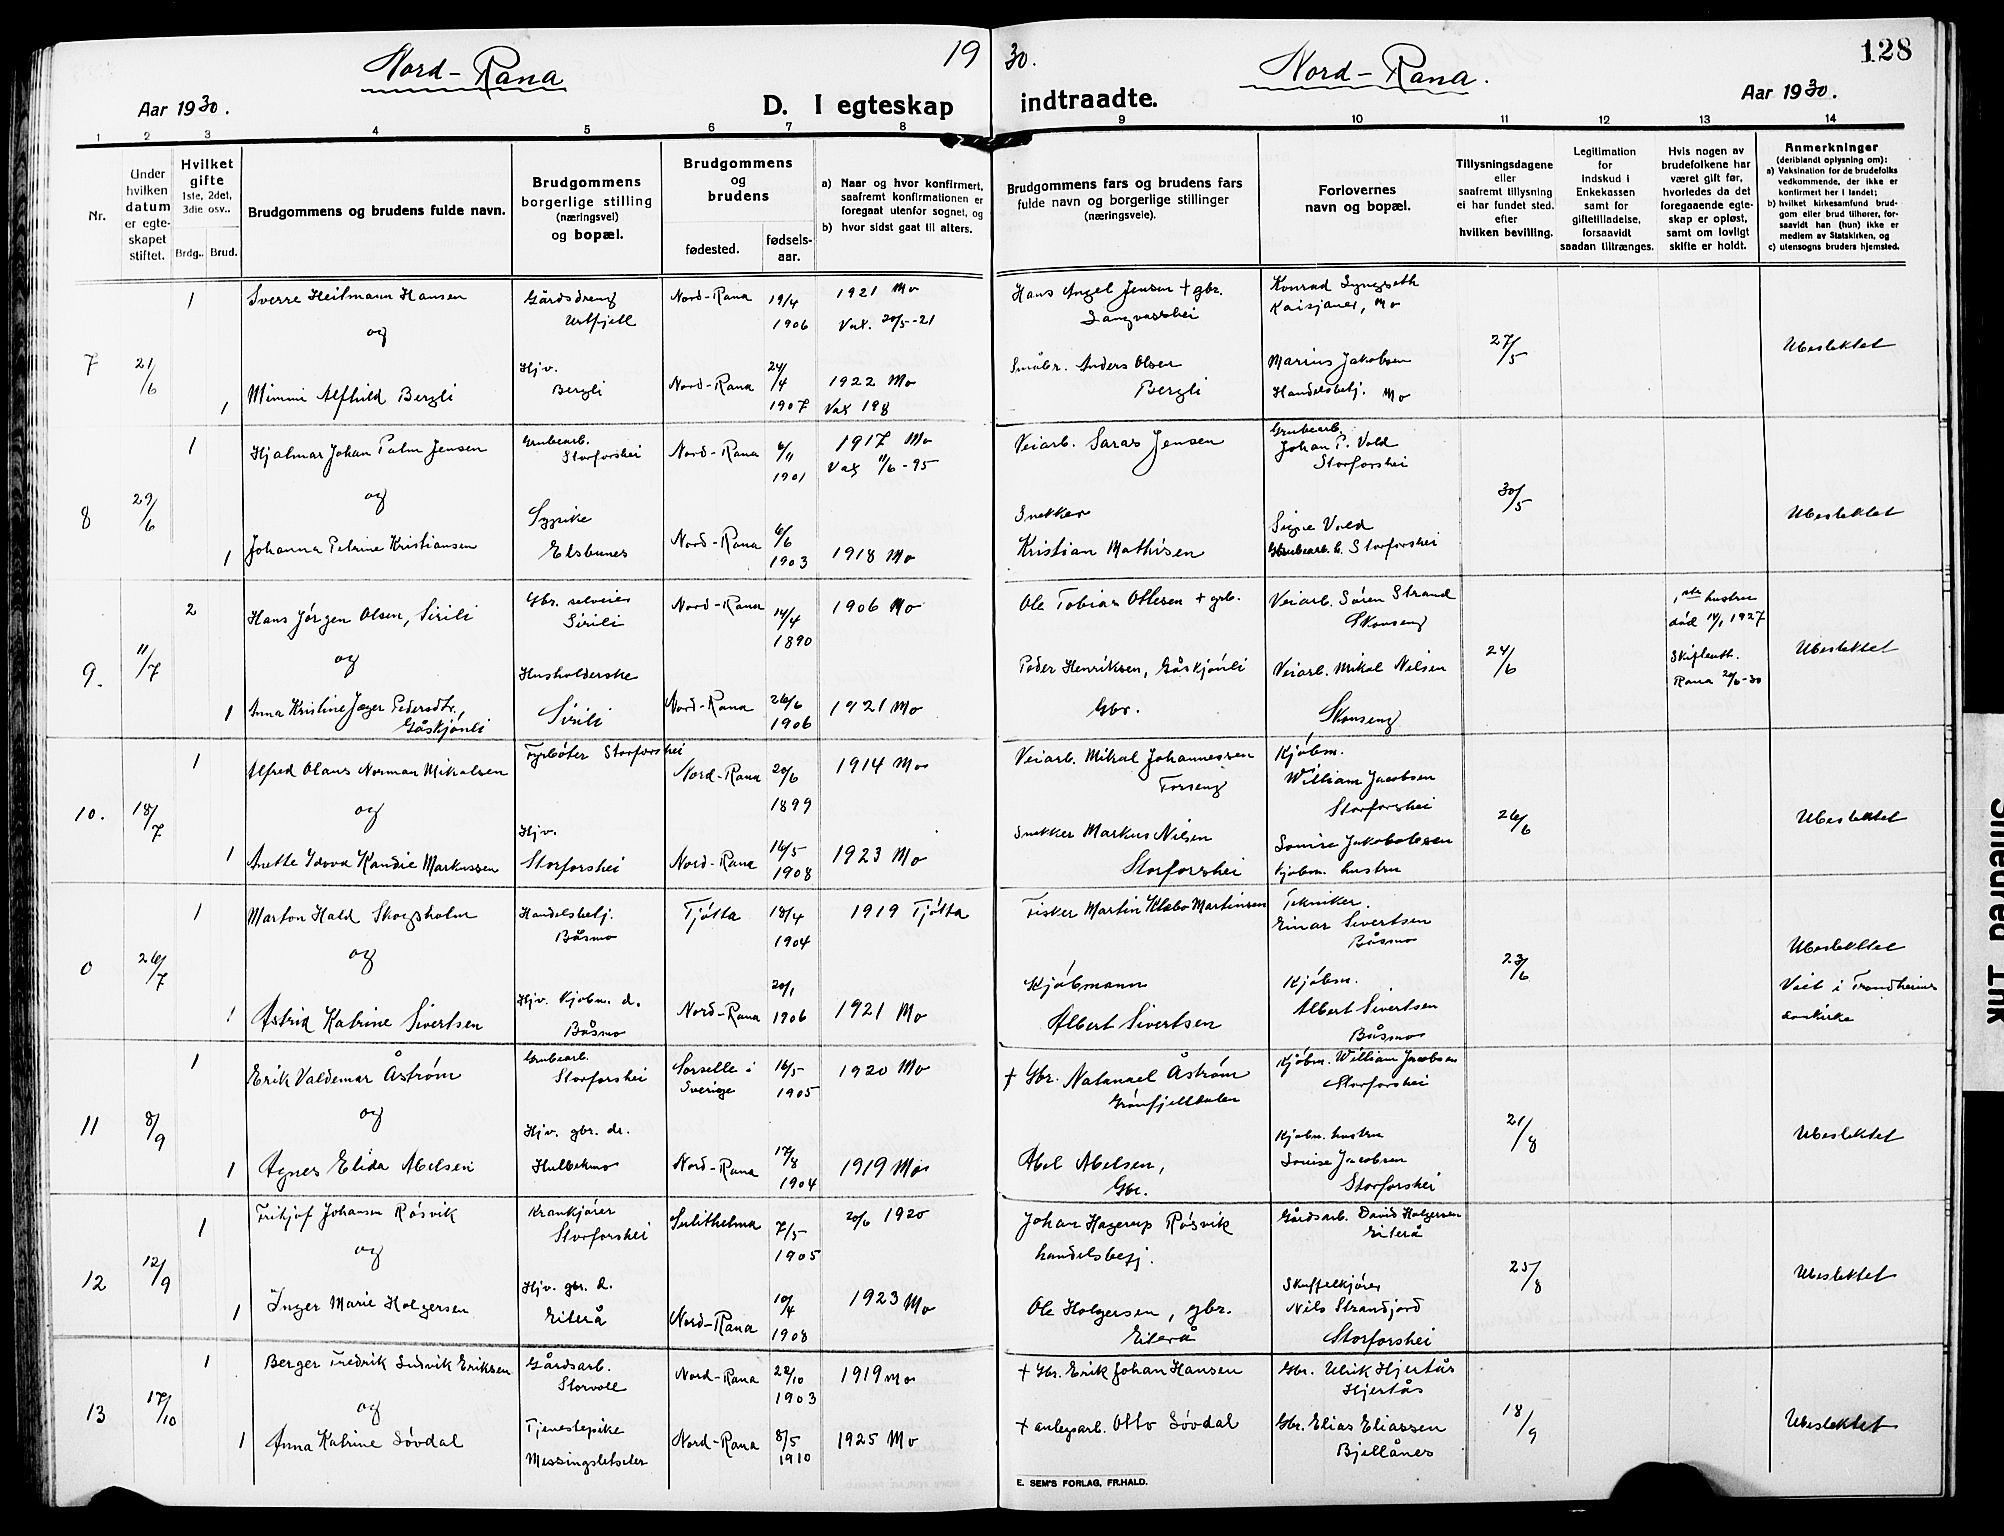 Nord-Rana
19
30.
Nord-Rana.
128
Aar 1930.
D. I egteskap
indtraadte.
Aar 1930.
1 2 3 4 5 6 7 8 9 10 11 12 13 14
Nr.
Under
hvilken
datum
er egte-
skapet
stiftet.
Hvilket
gifte
1ste, 2det,
3die osv..
Brdg.. Brud.
Brudgommens og brudens fulde navn.
Brudgommens
borgerlige stilling
(næringsvei)
og bopæl.
Brudgommens
og
brudens
fødested.
fødsels-
aar.
a) Naar og hvor konfirmert,
saafremt konfirmationen er
foregaat utenfor sognet, og
b) hvor sidst gaat til alters.
Brudgommens fars og brudens fars
fulde navn og borgerlige stillinger
(næringsveie).
Forlovernes
navn og bopæl.
Tillysningsdagene
eller
saafremt tillysning
ei har fundet sted.
efter
hvilken bevilling.
Legitimation
for
indskud i
Enkekassen
samt for
giftetilladelse,
forsaavidt
saadan tiltrænges.
Hvis nogen av
brudefolkene har
været gift før,
hvorledes da det
foregaaende egte-
skap er opløst,
samt om lovligt
skifte er holdt.
Anmerkninger
(deriblandt oplysning om):
a) Vaksination for de brudefolks
vedkommende, der ikke er
konfirmert her i landet;
b) hvilket kirkesamfund brud-
gom eller brud tilhører, for-
saavidt han (hun) ikke er
medlem av Statskirken, og
c) utensogns bruders hjemsted.
7
21/6
1
Sverre Heitmann Hansen
og
Gårdsdreng
Urtfjell
Nord-Rana
19/4
1906
1921 Mo
Vax. 20/5-21
Hans Angel Jensen + gbr.
Langvasshei
Konrad Lyngseth
Kaisjaner, Mo
27/5
Ubeslektet
1
Mimmi Alfhild Bergli
Hjv.
Bergli
Nord-Rana
24/4
1907
1922 Mo
Vax 198
Småbr. Anders Olsen
Bergli
Marius Jakobsen
Handelsbetj. Mo
8
29/6
1
Hjalmar Johan Palm Jensen
og
Grubearb.
Storforshei
Nord-Rana
6/11
1901
1917 Mo
Vax 11/6-95
Veiarb. Saras Jensen
Grubearb.
Johan P. Vold
Storforshei
30/5
Ubeslektet
1
Johanna Petrine Kristiansen
Sypike
Elsbunes
Nord-Rana
6/6
1903
1918 Mo
Snekker
Kristian Mathisen
Signe Vold
Grubearb. Storforshei
9.
11/7
2
Hans Jørgen Olsen, Sirili
og
Gbr. selveier
Sirili
Nord-Rana
14/4
1890
1906 Mo
Ole Tobias Ottesen + gbr.
Veiarb. Søren Strand
Skonseng
24/6
1ste hustru
død 14/1 1927
Skifteatt.
Rana 20/6-30
Ubeslektet
1
Anna Kristine Jæger Pedersdtr.,
Gåskjønli
Husholderske
Sirili
Nord-Rana
26/6
1906
1921 Mo
Peder Henriksen, Gåskjønli
Gbr.
Veiarb. Mikal Nilsen
Skonseng
10.
18/7
1
Alfred Olaus Norman Mikalsen
og
Fyrbøter Storforshei
Nord-Rana
20/6
1899
1914 Mo
Veiarb. Mikal Johannessen
Forseng
Kjøbm.
William Jacobsen
Storforshei
26/6
Ubeslektet
1
Anette Markussen
Hjv.
Storforshei
Nord-Rana
16/5
1908
1923 Mo
Snekker Markus Nilsen
Storforshei
Lovise
Kjøbm. hustru
0
26/7
1
Marton Hald Skogsholm
og
Handelsbetj.
Båsmo
Tjøtta
18/4
1904
1919 Tjøtta
Fisker Martin Klæbo Martinsen
Tekniker.
Einar Sivertsen
Båsmo
23/6
Ubeslektet
Viet i Trondheims
domkirke
1
Astrid Katrine Sivertsen
Hjv. Kjøbm. d.
Båsmo
Nord-Rana
20/1
1906
1921 Mo
Kjøbmann
Albert Sivertsen
Kjøbm.
Albert Sivertsen
Båsmo
11
8/9
1
Erik Valdemar Åstrøm
og
Grubearb.
Storforshei
Sorselle i
Sverige
16/5
1905
1920 Mo
+ Gbr. Natanael Åstrøm
Grønfjelldalen
Kjøbm. William Jacobsen
Storforshei
21/8
Ubeslektet
1
Agnes Elida Abelsen
Hjv. gbr. dr.
Hulbekmo
Nord-Rana
17/8
1904
1919 Mo
Abel Abelsen,
Gbr.
Kjøbm. hustru
Lovise Jacobsen
Storforshei
12
12/9
1
Frithjof Johansen Røsvik
og
Krankjører
Storforshei
Sulithelma
7/5
1905
20/6 1920
Johan Hagerup Røsvik
handelsbetj.
Gårdsarb. David Holgersen
Eiterå
25/8
Ubeslektet
1
Inger Marie Holgersen
Hjv. gbr. d.
Eiterå
Nord-Rana
10/4
1908
1923 Mo
Ole Holgersen, gbr.
Eiterå
Skuffelkjører
Nils Strandjord
Storforshei
13
17/10
1
Berger Fredrik Ludvik Eriksen
og
Gårdsarb.
Storvoll
Nord-Rana
22/10
1903
1919 Mo
+ Gbr. Erik Johan Hansen
Gbr. Ulrik Hjertås
Hjertås
18/9
Ubeslektet
1
Anna Katrine Søvdal
Tjenestepike
Messingsletseter
Nord-Rana
8/5
1910
1925 Mo
+ anlegsarb. Otto Søvdal
Gbr. Elias Eliassen
Bjellånes
E. SEM'S FORLAG, FR.HALD.